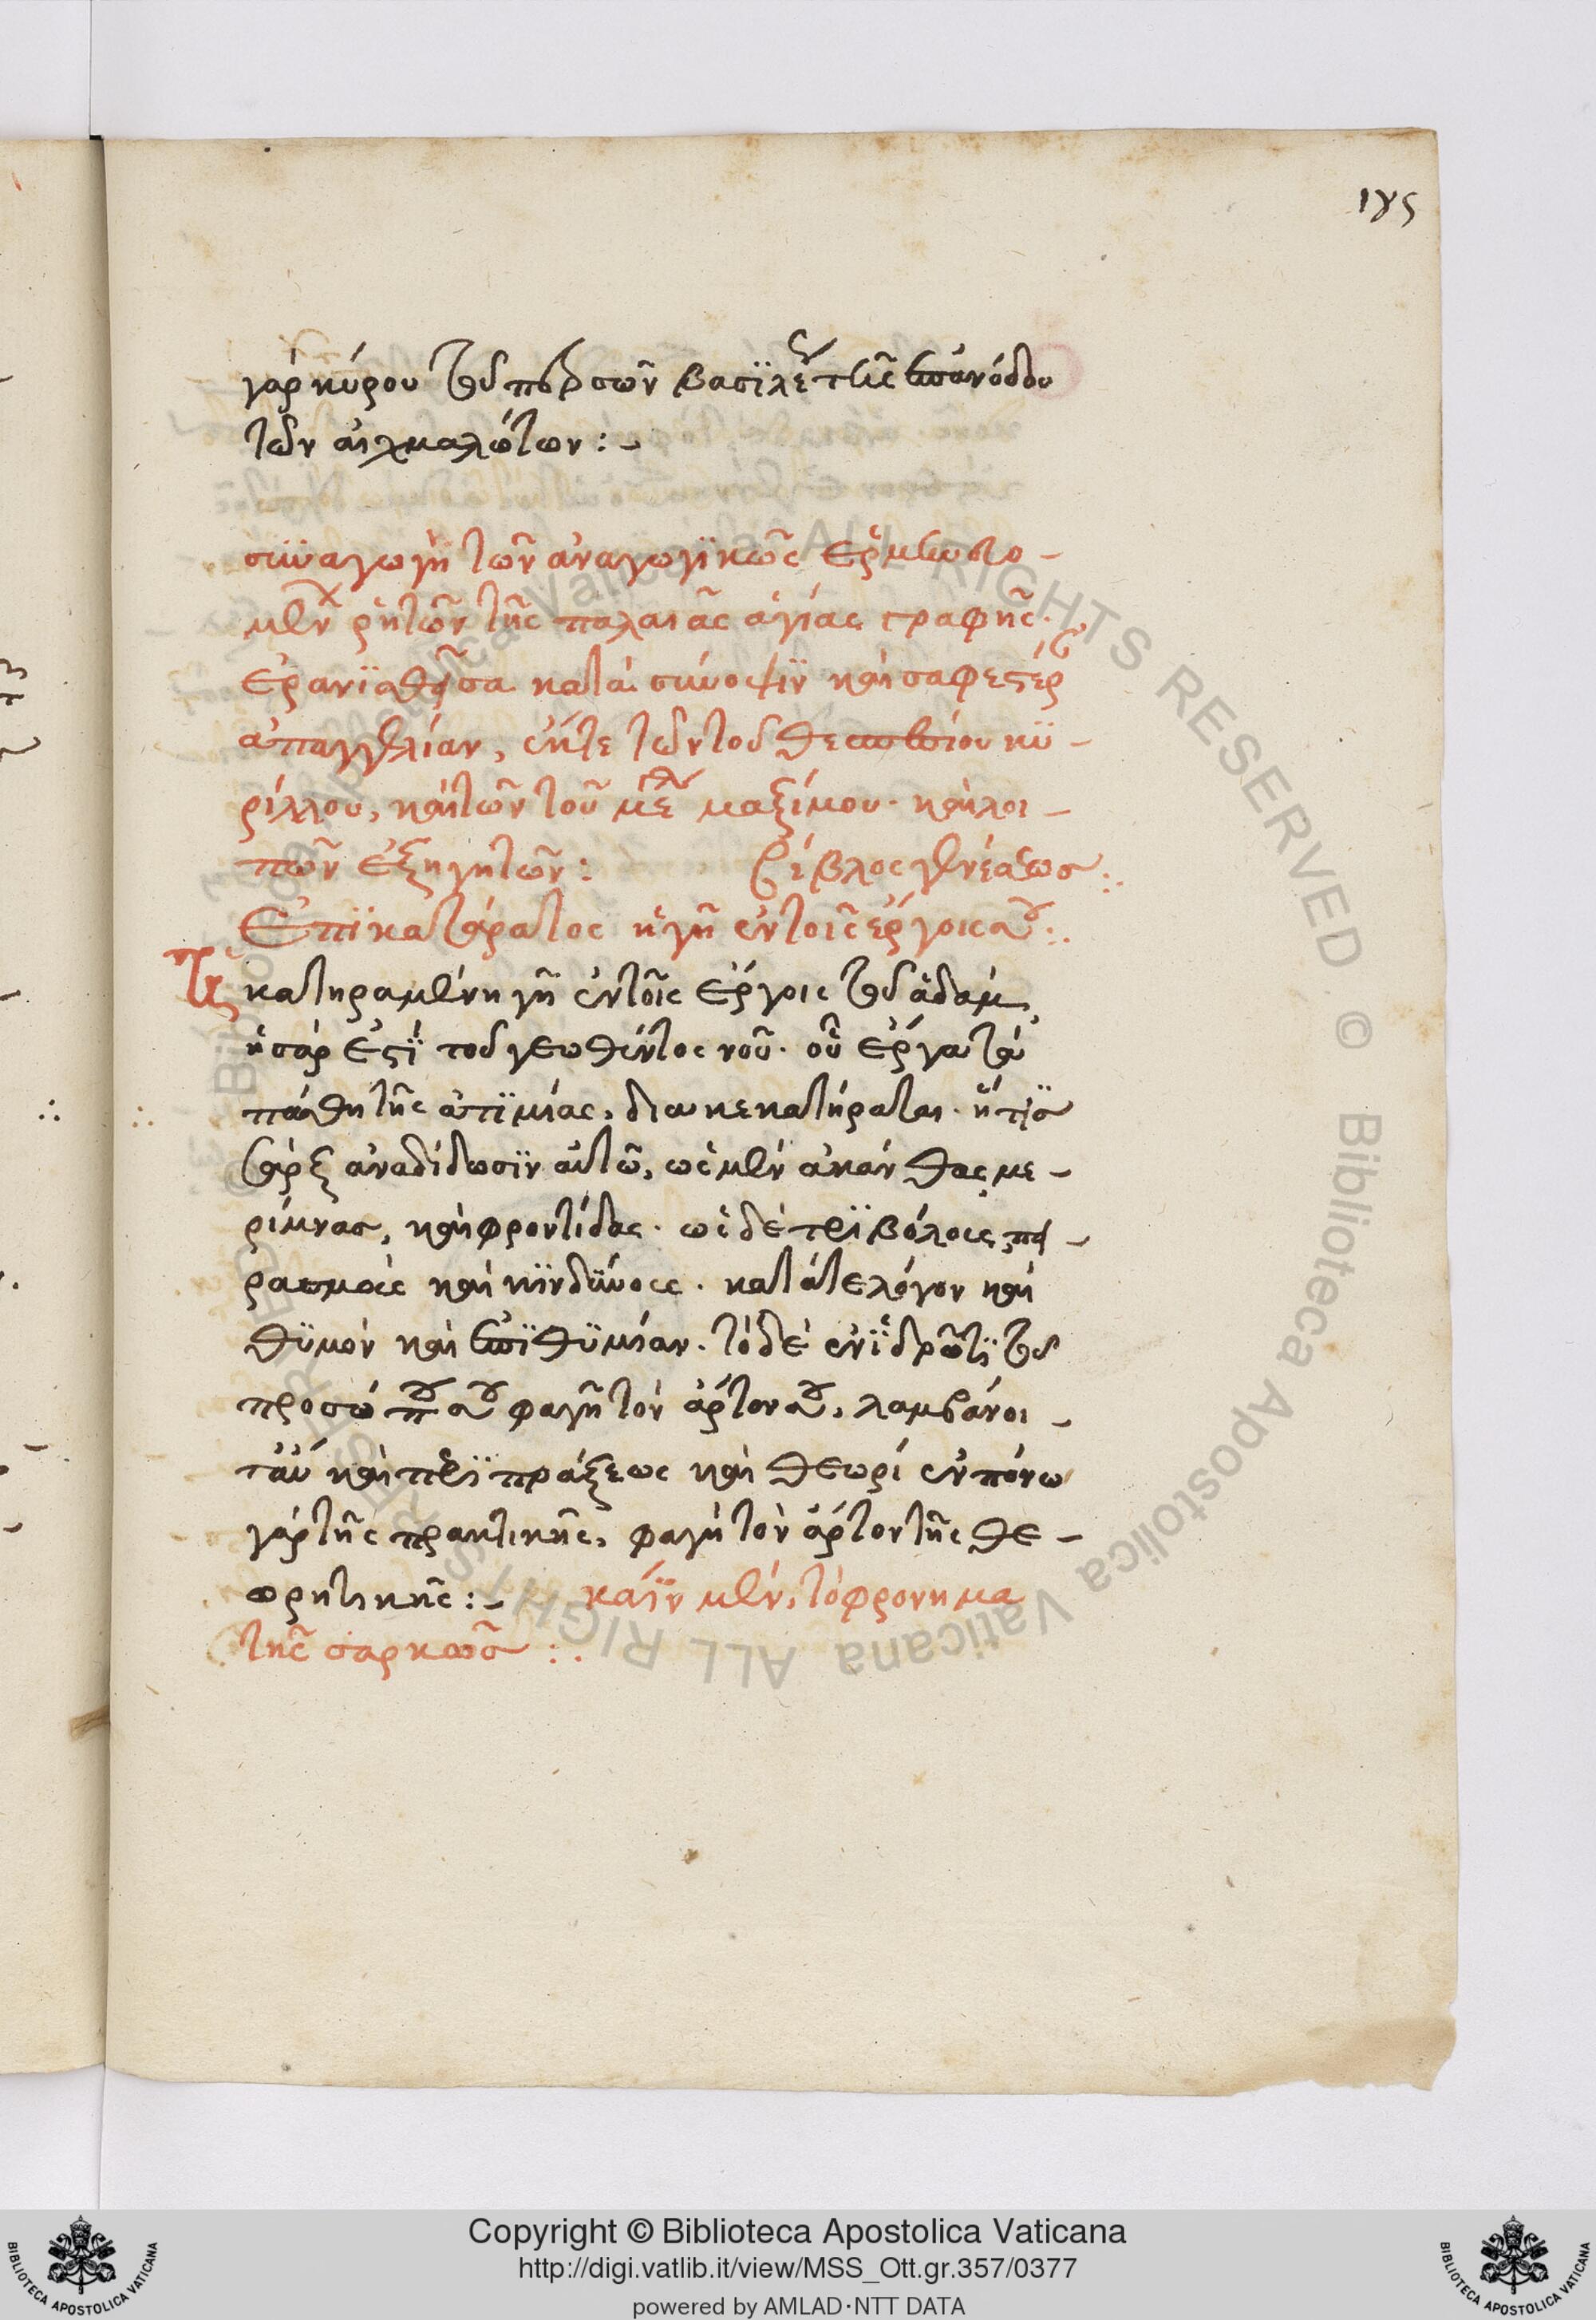 ιγς
γὰρ κύρου τοῦ περσῶν βασϊλέως τῆς ἐπανόδου
τῶν αἰχμαλώτων :-
συναγωγὴ τῶν ἀναγωγϊκῶς ἑρμηνευο-
μένων ῥητῶν τῆς παλαιᾶς ἁγίας γραφῆς.
ἐρανϊσθῆσα κατὰ σύνοψϊν καὶ σαφεστέραν
ἀπαγγελίαν, ἔκ τε τῶν τοῦ θεσπεσίου κϋ-
ρίλλου, καὶ τῶν τοῦ μεγάλου μαξίμου. καὶ λοι-
πῶν ἐξηγητῶν :
βίβλος γενέσεως :.
Ἐπϊκατάρατος ἡ γῆ ἐν τοῖς ἔργοις σου :.
Ἡ
κατηραμένη γῆ ἐν τοῖς ἔργοις τοῦ ἀδάμ,
ἡ σάρξ ἐστϊ τοῦ γεωθέντος νοῦ. οὗ ἔργα τὰ
πάθη τῆς ἀτϊμίας, δι' ὧν κεκατήραται. ἥτις
σὰρξ ἀναδίδωσϊν αὐτῶ, ὡς μὲν ἀκάνθας με-
ρίμνας, καὶ φροντίδας. ὡς δὲ τρϊβόλους, πει-
ρασμοὺς καὶ κϊνδϋνους. κατά τε λόγον καὶ
θϋμὸν καὶ ἐπϊθϋμίαν. τὸ δὲ ἐν ἱδρῶτϊ τοῦ
προσώπου σου φαγῆ τὸν ἄρτον σου, λαμβάνοι-
τ' ἂν καὶ περϊ πράξεως καὶ θεωρί ἐν πόνω
γὰρ τῆς πρακτικῆς, φαγῆ τὸν ἄρτον τῆς θε-
ωρητικῆς :-
κάϊν μὲν, τὸ φρόνημα
τῆς σαρκὸς :.
Copyright © Biblioteca Apostolica Vaticana
http://digi.vatlib.it/view/MSS_Ott.gr.357/0377
powered by AMLAD·NTT DATA
BIBLIOTECA APOSTOLICA VATICANA
BIBLIOTECA APOSTOLICA VATICANA